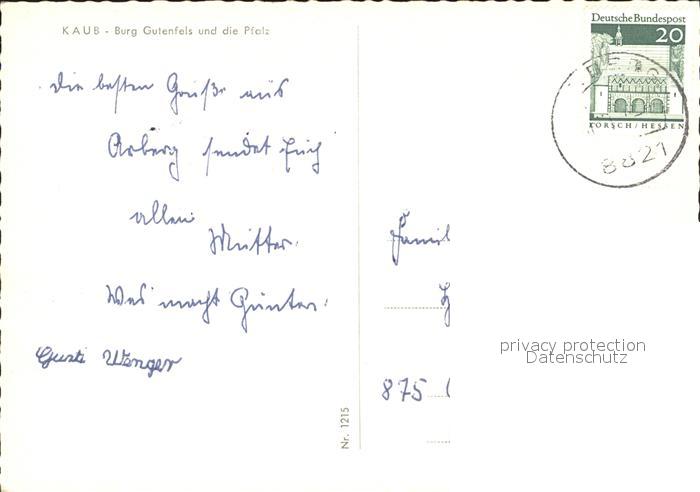 KAUB - Burg Gutenfels und die Pfalz
Deutsche Bundespost
20
LORSCH/HESSEN
8821
die besten Grüße aus
Arberg sendet Euch
allen
Mutter.
Was macht Günter.
Gusti Wenger
Famil
H
875
Nr. 1215
privacy protection
Datenschutz